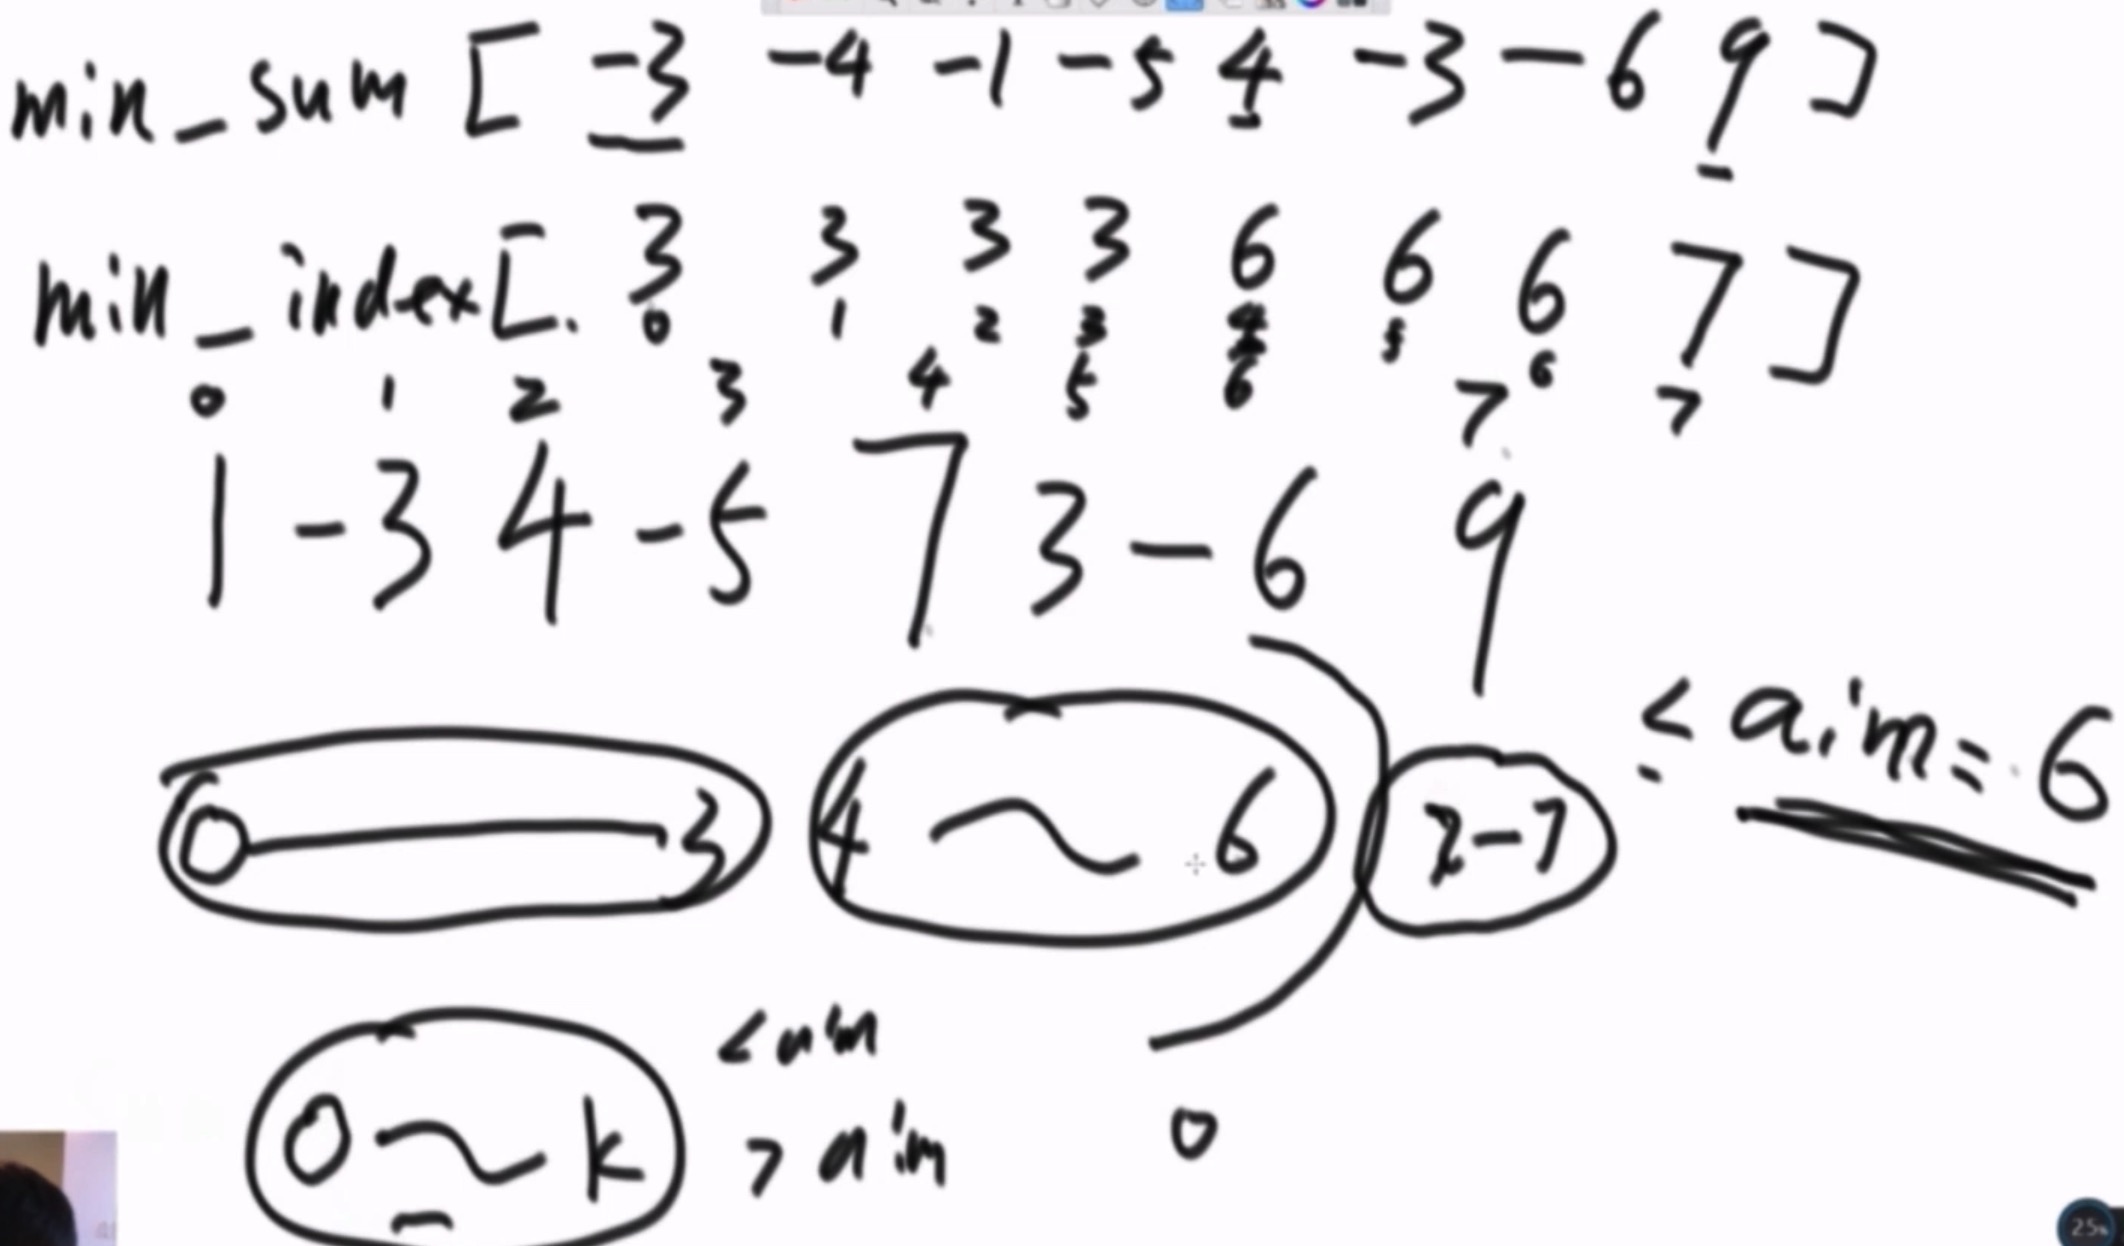 min_sum [ -3 -4 -1 -5 4 -3 -6 9 ]
min_index [. 3 3 3 3 6 6 6 7 ]
0 1 2 3 4 5 6 7
0 1 2 3 4 5 6 7
1 -3 4 -5 7 3 -6 9
≤ aim = 6
0 — 3 4 ~ 6 7-7
< aim
0 ~ k > aim 0
25%